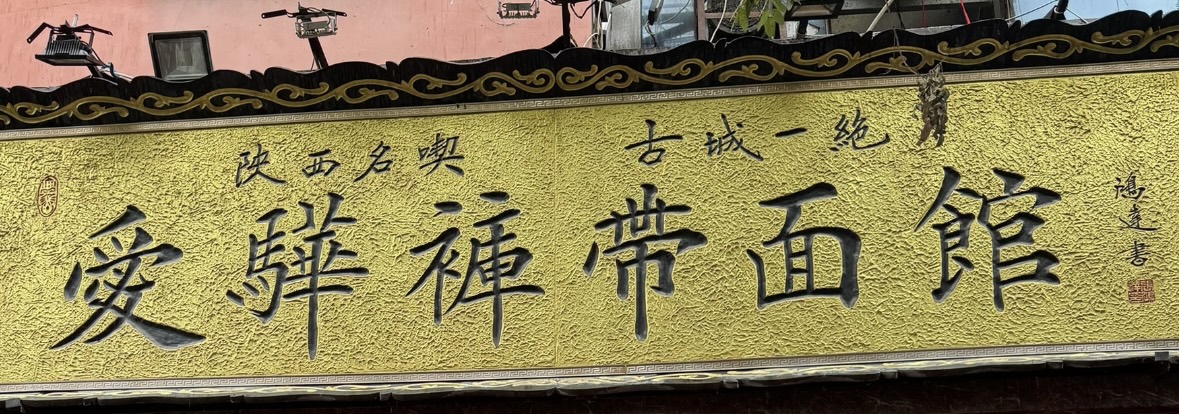 陝西名喫 古城一絶
愛驊褲帶面館
鴻達書